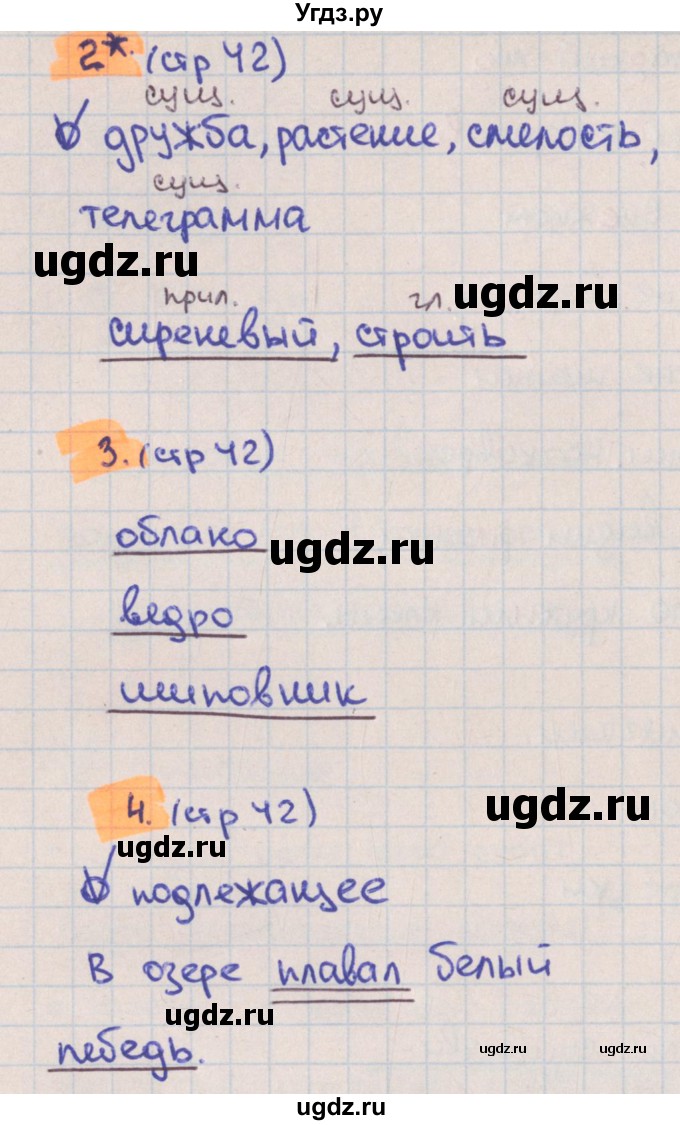 Угдз.ру
2*. (стр 42)
сущ. сущ. сущ.
дружба, растение, смелость,
сущ.
телеграмма
ugdz.ru
прил. гл. ugdz.ru
сиреневый, строить
3. (стр 42)
облако ugdz.ru
ведро
шиповник
ugdz.ru
4. (стр 42)
ugdz.ru
подлежащее
В озере плавал белый
ugdz.ru
лебедь. ugdz.ru ugdz.ru
ugdz.ru